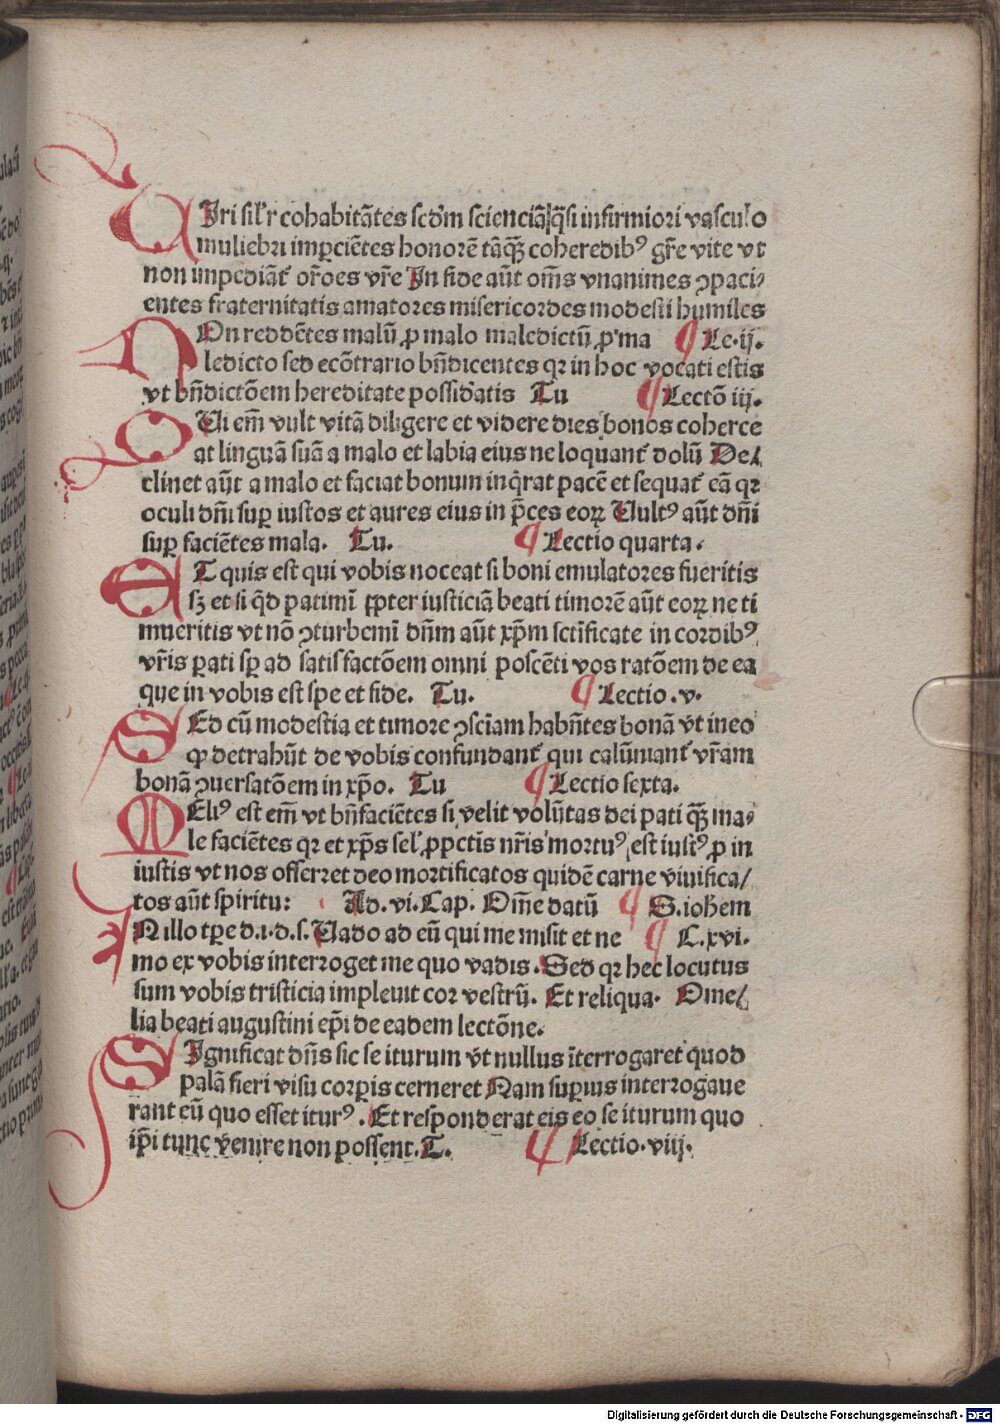 VIri sil'r cohabitãtes scd'm scienciã q̃si infirmiori vasculo
muliebri imꝑciẽtes honorẽ tãq̃ꝫ coheredibꝰ gr̃e vite vt
non impediãt᷑ or̃oes vr̃e In fide aũt om̃s vnanimes ꝯpaci-
entes fraternitatis amatores misericordes modesti humiles
NOn reddẽtes malũ ꝓ malo maledictũ ꝓ ma ¶ Le.ij.
ledicto sed ecõtrario bñdicentes qꝛ in hoc vocati estis
vt bñdictõem hereditate possid'atis Tu ¶ Lectõ iij.
QUi em̃ vult vitã diligere et videre dies bonos coherce
at linguã suã a malo et labia eius ne loquant᷑ dolũ De/
clinet aũt a malo et faciat bonum inq̇rat pacẽ et sequat᷑ eã qꝛ
oculi dñi suꝑ iustos et aures eius in p̃ces eoꝝ Vultꝰ aũt dñi
suꝑ faciẽtes mala. Tu. ¶ Lectio quarta.
ET quis est qui vobis noceat si boni emulatores fueritis
sꝫ et si q̇d patimĩ ꝓpter iusticiã beati timorẽ aũt eoꝝ ne ti
mueritis vt nõ ꝯturbemĩ dñm aũt xp̃m sctĩficate in cordibꝰ
vr̃is ꝑati sꝑ ad satisfactõem omni poscẽti vos ratõem de ea
que in vobis est spe et fide. Tu. ¶ Lectio .v.
SEd cũ modestia et timore ꝯsciam habñtes bonã vt in eo
ꝙ detrahũt de vobis confundant᷑ qui calũniant᷑ vr̃am
bonã ꝯuersatõem in xp̃o. Tu ¶ Lectio sexta.
MEliꝰ est em̃ vt bñfaciẽtes si velit volũtas dei pati q̃ꝫ ma-
le faciẽtes qꝛ et xp̃s sel' ꝓ pctĩs nr̃is mortuꝰ est iustꝰ ꝓ in
iustis vt nos offerret deo mortificatos quidẽ carne viuifica/
tos aũt spiritu: Ad. vi. Cap. Om̃e datũ ¶ S. ioħem
IN illo tꝑe d.i.d.s. Vado ad eũ qui me misit et ne ¶ C.xvi.
mo ex vobis interroget me quo vadis. Sed qꝛ hec locutus
sum vobis tristicia impleuit cor vestrũ. Et reliqua. Ome/
lia beati augustini ep̃i de eadem lectõne.
SIgnificat dñs sic se iturum vt nullus ĩterrogaret quod
palã fieri visu corꝑis cerneret Nam suꝑius interrogaue
rant eũ quo esset iturꝰ. Et responderat eis eo se iturum quo
ip̃i tunc venire non possent. T. ¶ Lectio. viij.
Digitalisierung gefördert durch die Deutsche Forschungsgemeinschaft - DFG